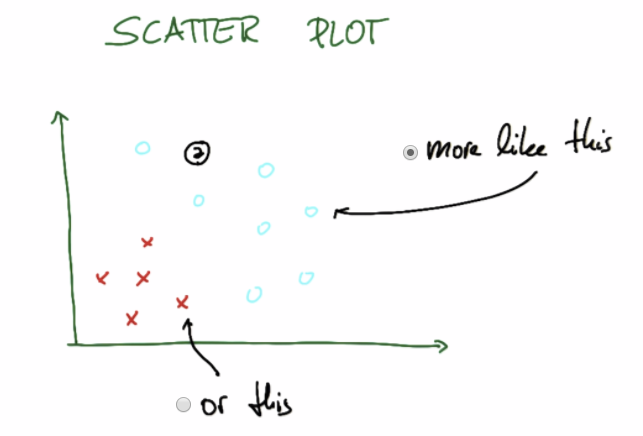 SCATTER PLOT
?
more like this
or this